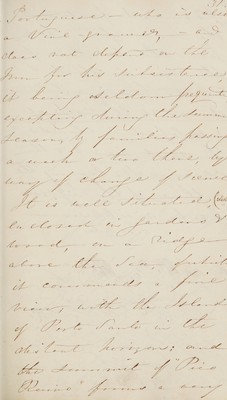 Portuguese - who is also
a Vine grower, - and
does not depend on the
Inn for his subsistence,
it being seldom frequented
excepting during the summer
season, by families passing
a week or two there, by
way of change of scene
It is well situated,
enclosed in gardens &
wood, on a ridge
above the Sea, which
it commands a fine
view, with the Island
of Porto Santo in the
distant horizon; and
the summit of "Pico
Ruivo" forms a very